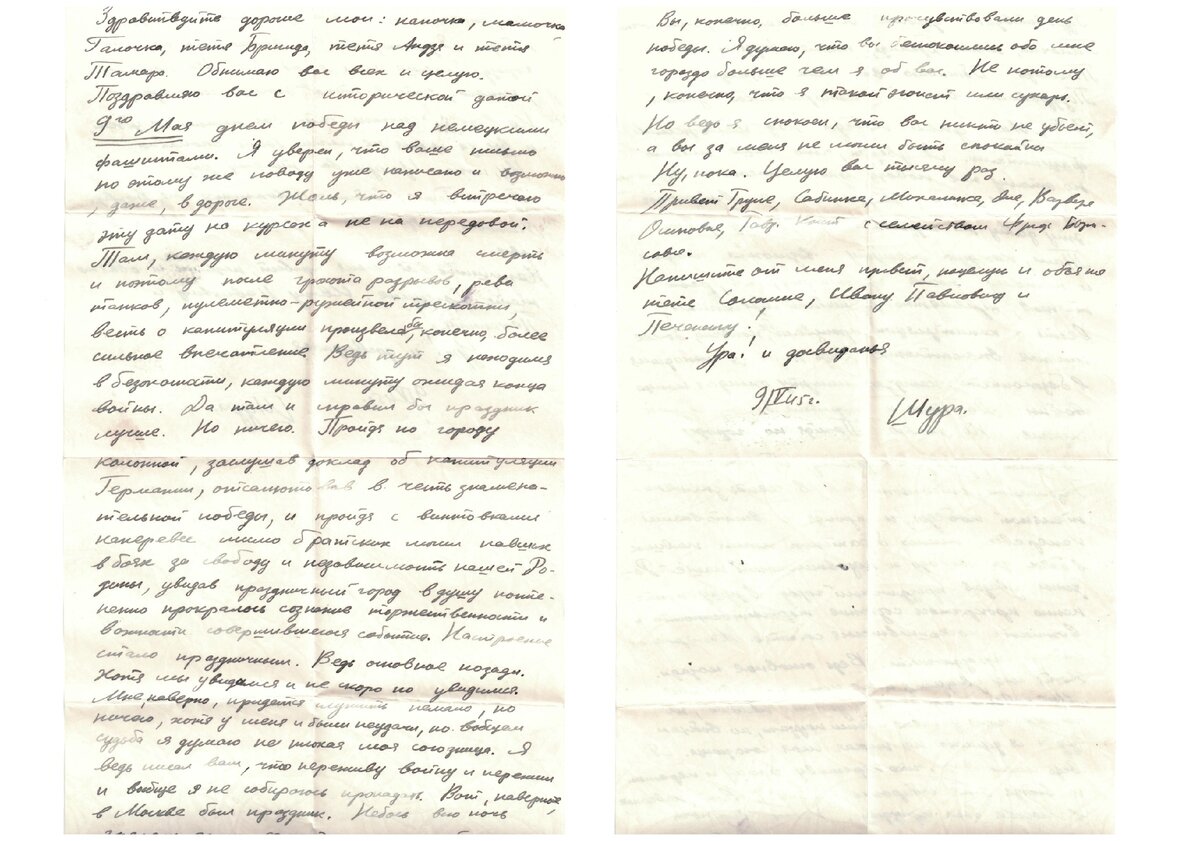 Здравствуйте дорогие мои: папочка, мамочка
Галочка, тетя Бригида, тетя Андзя и тетя
Тамара. Обнимаю вас всех и целую.
Поздравляю вас с исторической датой
9го Мая днем победы над немецкими
фашистами. Я уверен, что ваше письмо
по этому же поводу уже написано и возможно
, даже, в дороге. Жаль, что я встречаю
эту дату на курсах а не на передовой.
Там, каждую минуту возможна смерть
и поэтому после грохота разрывов, рева
танков, пулеметно-ружейной трескотни,
весть о капитуляции произвела бы, конечно, более
сильное впечатление. Ведь тут я находился
в безопасности, каждую минуту ожидая конца
войны. Да там и справил бы праздник
лучше. Но ничего. Пройдя по городу
колонной, заслушав доклад об капитуляции
Германии, отсалютовав в честь знамена-
тельной победы, и пройдя с винтовками
наперевес мимо братских могил павших
в боях за свободу и независимость нашей Ро-
дины, увидав праздничный город в душу посте-
пенно прокралось сознание торжественности и
важности совершившегося события. Настроение
стало праздничным. Ведь основное позади.
Хотя мы увидимся и не скоро но увидимся.
Мне, наверно, придется служить немало, но
ничего, хотя у меня и были неудачи, но вобщем
судьба я думаю не плохая моя союзница. Я
ведь писал вам, что переживу войну и пережил
и вобще я не собираюсь пропадать. Вот, наверное,
в Москве был праздник. Небось всю ночь
Вы, конечно, больше прочувствовали день
победы. Я думаю, что вы беспокоились обо мне
гораздо больше чем я об вас. Не потому
, конечно, что я такой эгоист или сухарь.
Но ведь я спокоен, что вас никто не убьет,
а вы за меня не могли быть спокойны
Ну, пока. Целую вас тысячу раз.
Привет Груне, Сабинке, Варваре
Осиповне, с семейством Фриде Бори-
совне.
Напишите от меня привет, поцелуи и объятия
тете Саломие, Ивану Павловичу и
Печеному!
Ура! и досвиданья
9/V 45г.
Шура.